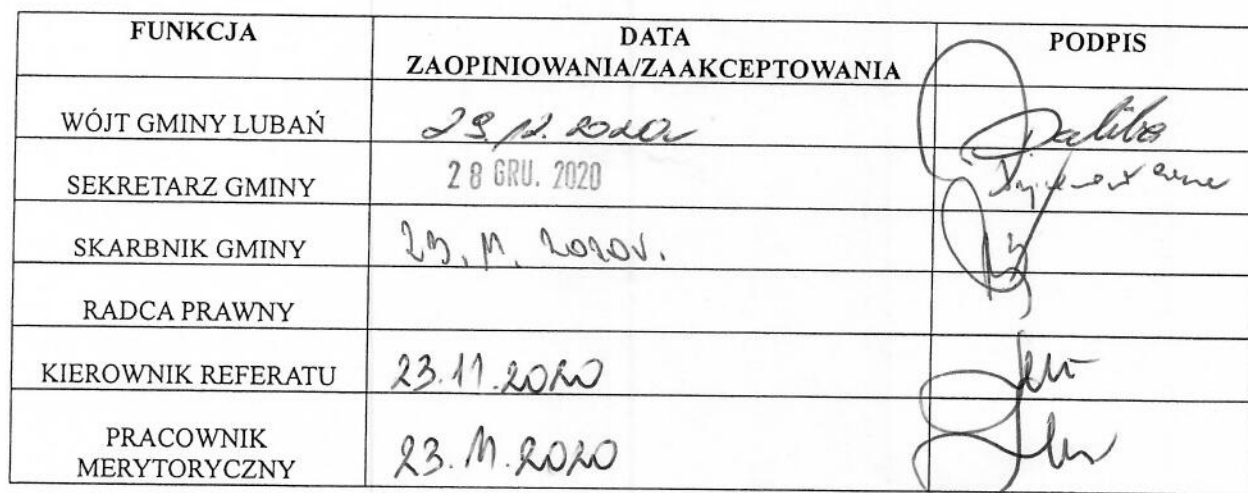 FUNKCJA DATA PODPIS
ZAOPINIOWANIA/ZAAKCEPTOWANIA
WÓJT GMINY LUBAŃ 29.12.2020r
SEKRETARZ GMINY 28 GRU. 2020
SKARBNIK GMINY 23.11.2020r.
RADCA PRAWNY
KIEROWNIK REFERATU 23.11.2020
PRACOWNIK
MERYTORYCZNY 23.11.2020